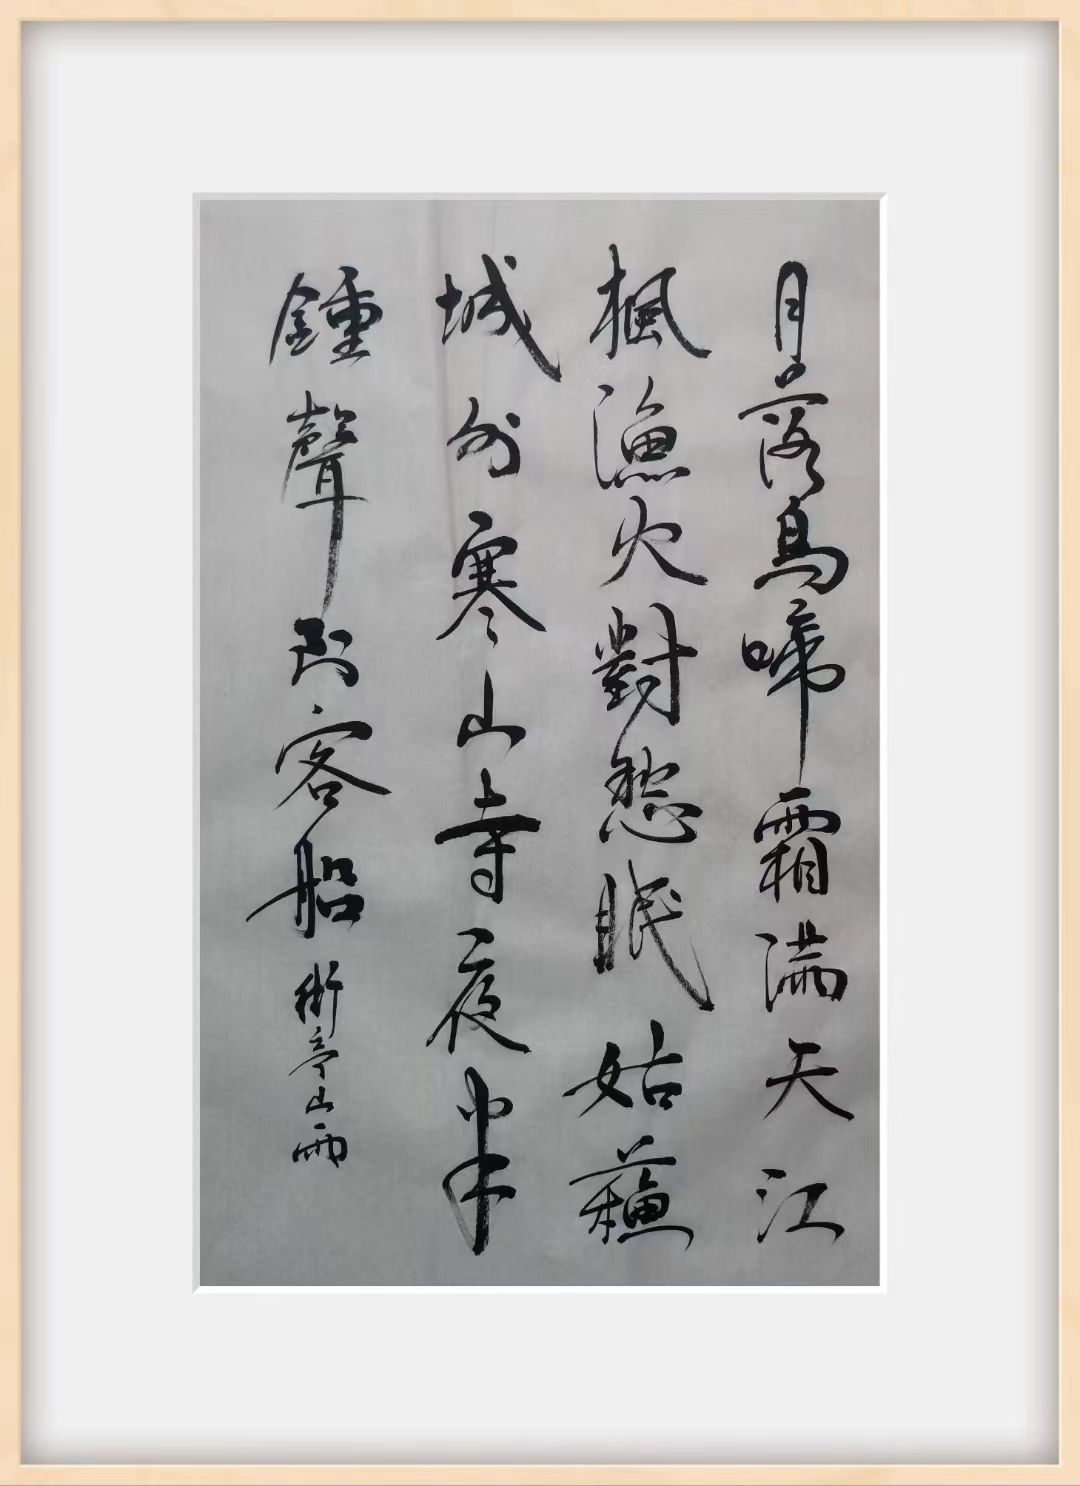 月落烏啼霜滿天江
楓漁火對愁眠姑蘇
城外寒山寺夜半
鍾聲到客船 衡亭山雨